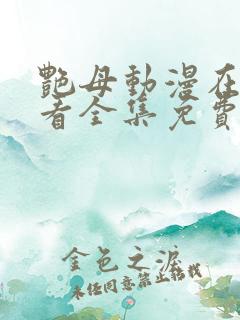 艷母動漫在
看全集免費
金色之淚
未经同意禁止转载